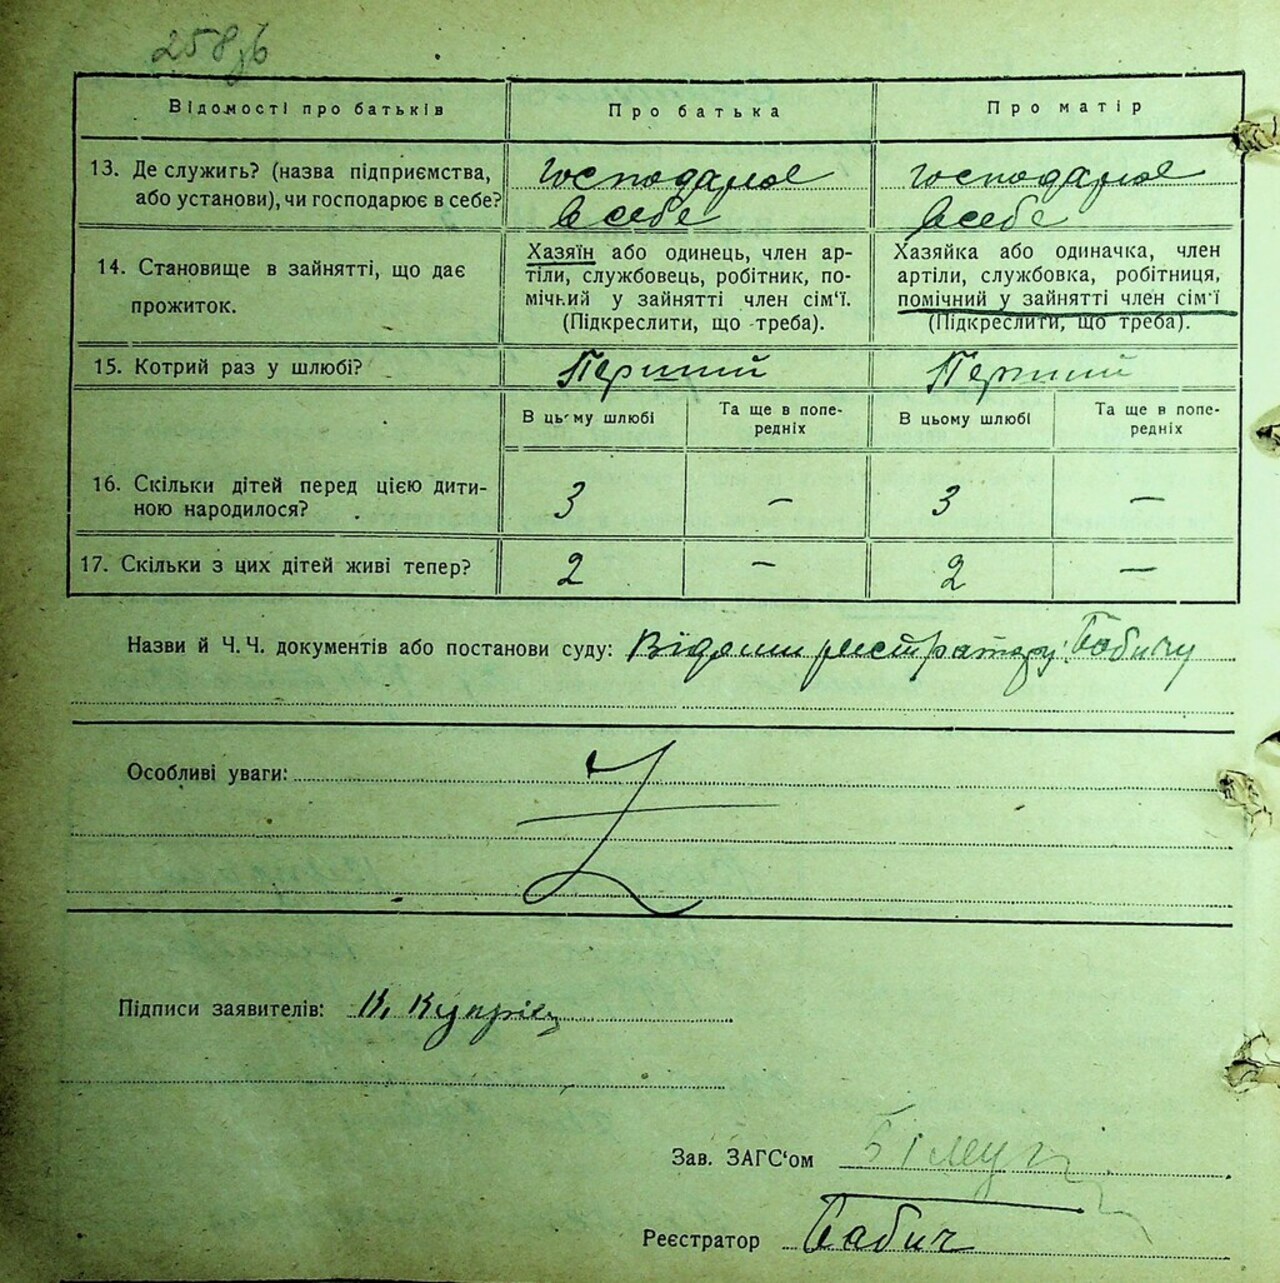 258зб
Відомості про батьків Про батька Про матір
13. Де служить? (назва підприємства, або установи), чи господарює в себе?
господарює в себе
господарює в себе
14. Становище в зайнятті, що дає прожиток.
Хазяїн або одинець, член ар-
тіли, службовець, робітник, по-
мічний у зайнятті член сім'ї.
(Підкреслити, що треба).
Хазяйка або одиначка, член
артіли, службовка, робітниця,
помічний у зайнятті член сім'ї
(Підкреслити, що треба).
15. Котрий раз у шлюбі? Перший Перший
В цьому шлюбі Та ще в попе-
редніх В цьому шлюбі Та ще в попе-
редніх
16. Скільки дітей перед цією дити-
ною народилося? 3 — 3 —
17. Скільки з цих дітей живі тепер? 2 — 2 —
Назви й Ч. Ч. документів або постанови суду: Відомий реєстратору Бабичу
Особливі уваги:
Підписи заявителів: К. Купрієц
Зав. ЗАГС'ом
Реєстратор Бабич